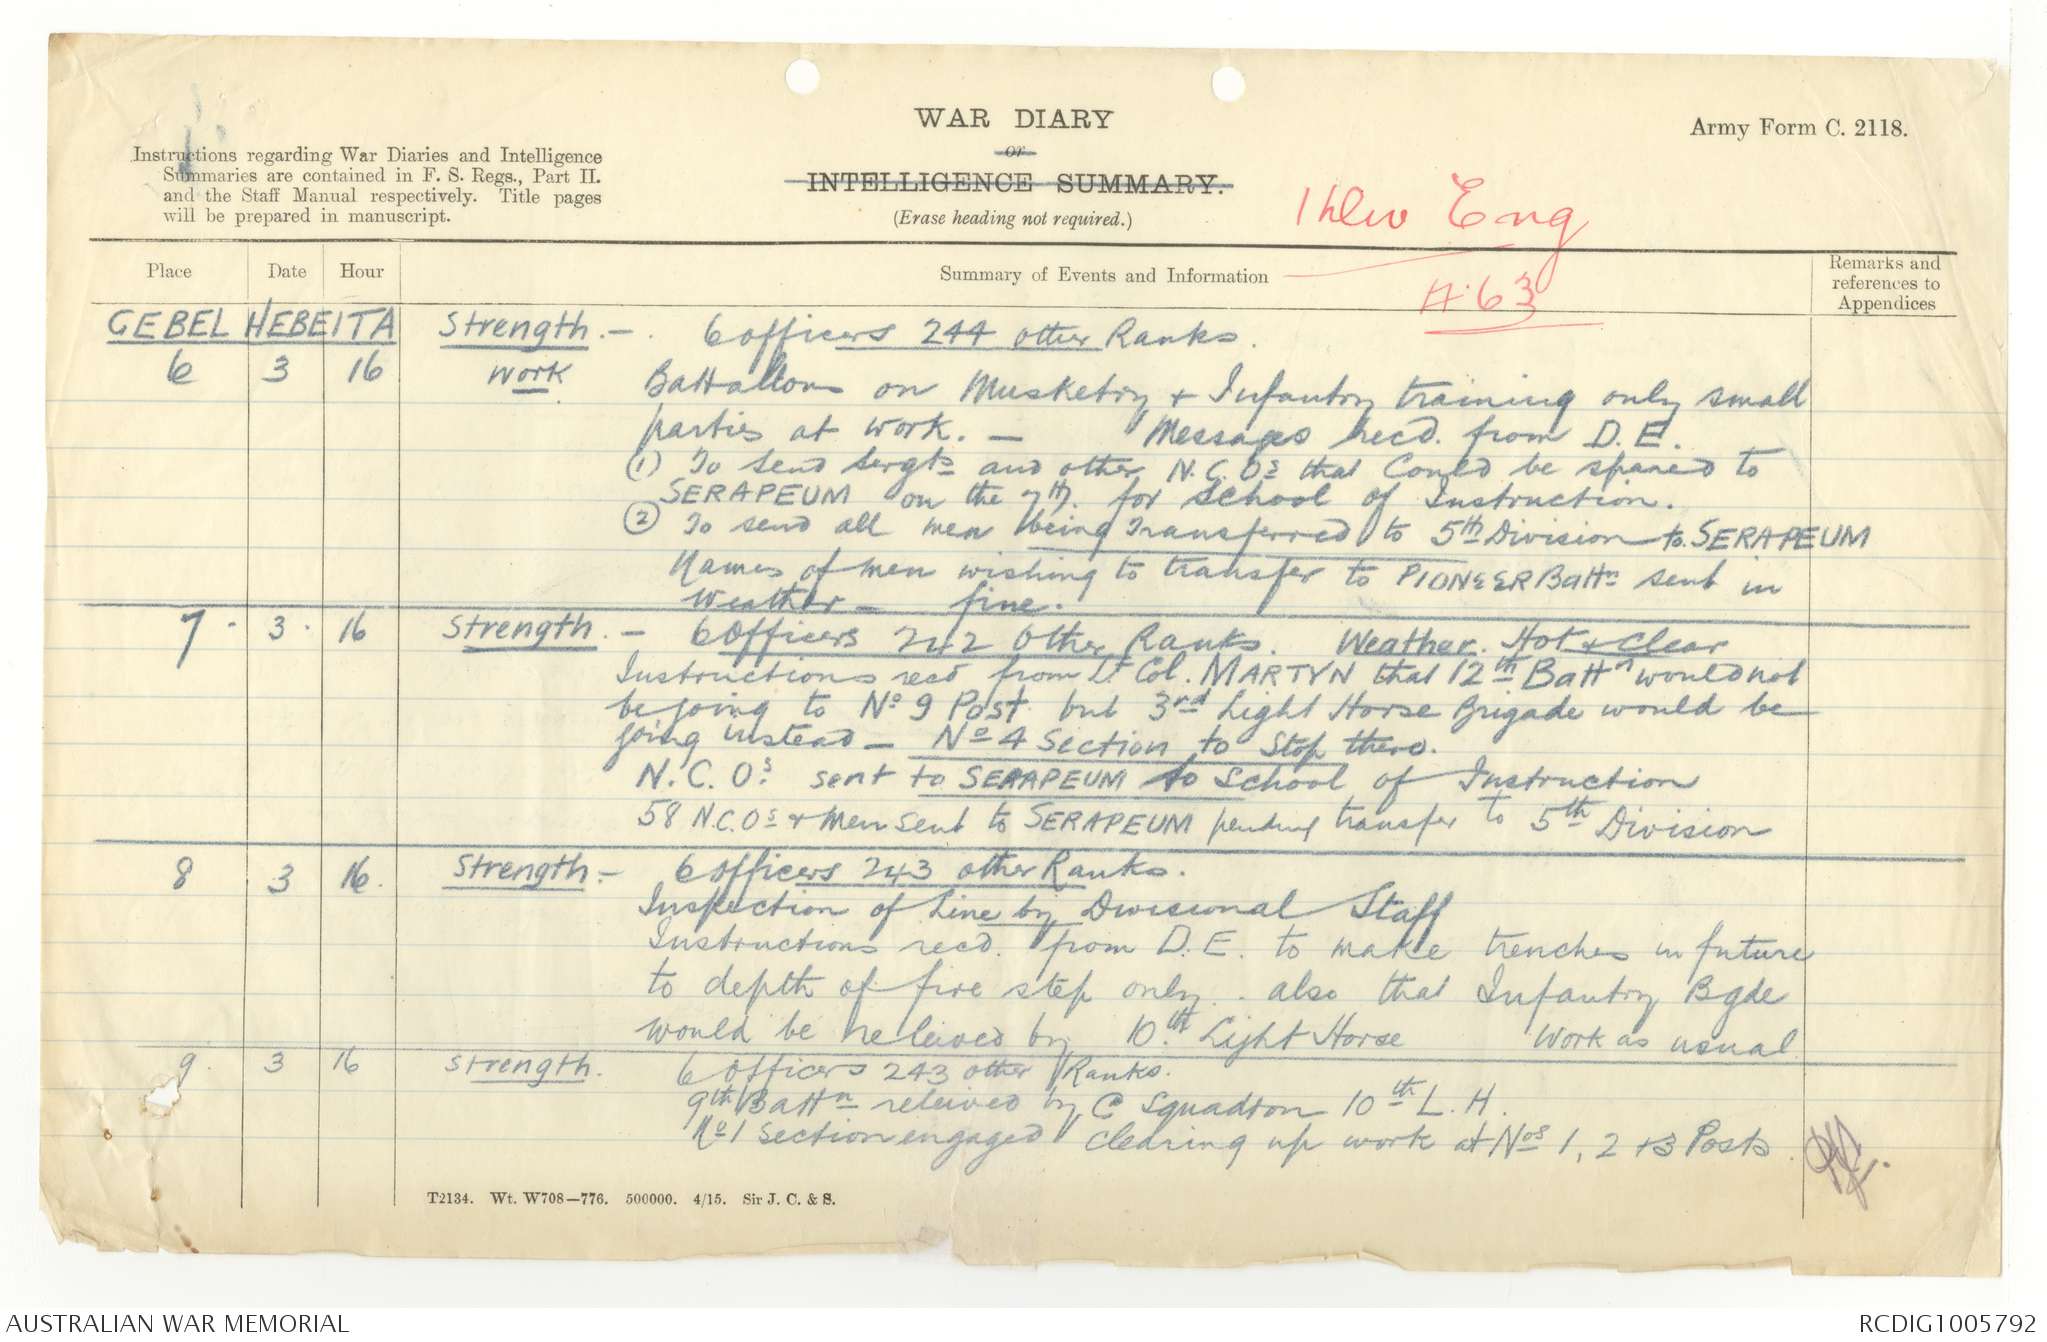 WAR DIARY
or
INTELLIGENCE SUMMARY.
(Erase heading not required.)
Army Form C. 2118.
Instructions regarding War Diaries and Intelligence
Summaries are contained in F. S. Regs., Part II.
and the Staff Manual respectively. Title pages
will be prepared in manuscript.
Eng
A. 63
Place Date Hour Summary of Events and Information Remarks and
references to
Appendices
GEBEL HEBEITA Strength. - 6 officers 244 other Ranks.
6 3 16 work Battallons on Musketry + Infantry training only small
parties at work. - Messages recd. from D.E.
(1) To send sergts and other N.C.Os that could be spared to
SERAPEUM on the 7th. for School of Instruction.
(2) To send all men being transferred to 5th Division to SERAPEUM
Names of men wishing to transfer to PIONEER Battn sent in
Weather - fine.
7. 3. 16 Strength. - 6 Officers 242 Other Ranks. Weather. Hot + clear
Instructions recd from Lt Col. MARTYN that 12th Battn would not
be going to No 9 Post but 3rd Light Horse Brigade would be
going instead - No 4 Section to stop there.
N.C.Os sent to SERAPEUM to School of Instruction
58 N.C.Os + Men sent to SERAPEUM pending transfer to 5th Division
8 3 16. Strength - 6 officers 243 other Ranks.
Inspection of Line by Divisional Staff
Instructions recd. from D.E. to make trenches in future
to depth of fire step only. also that Infantry Bgde
would be releived by 10th Light Horse Work as usual
9. 3 16 Strength. 6 Officers 243 other Ranks.
9th Battn releived by C Squadron 10th L.H.
No 1 Section engaged clearing up work at Nos 1, 2 + 3 Posts.
T2134. Wt. W708—776. 500000. 4/15. Sir J. C. & S.
AUSTRALIAN WAR MEMORIAL
RCDIG1005792